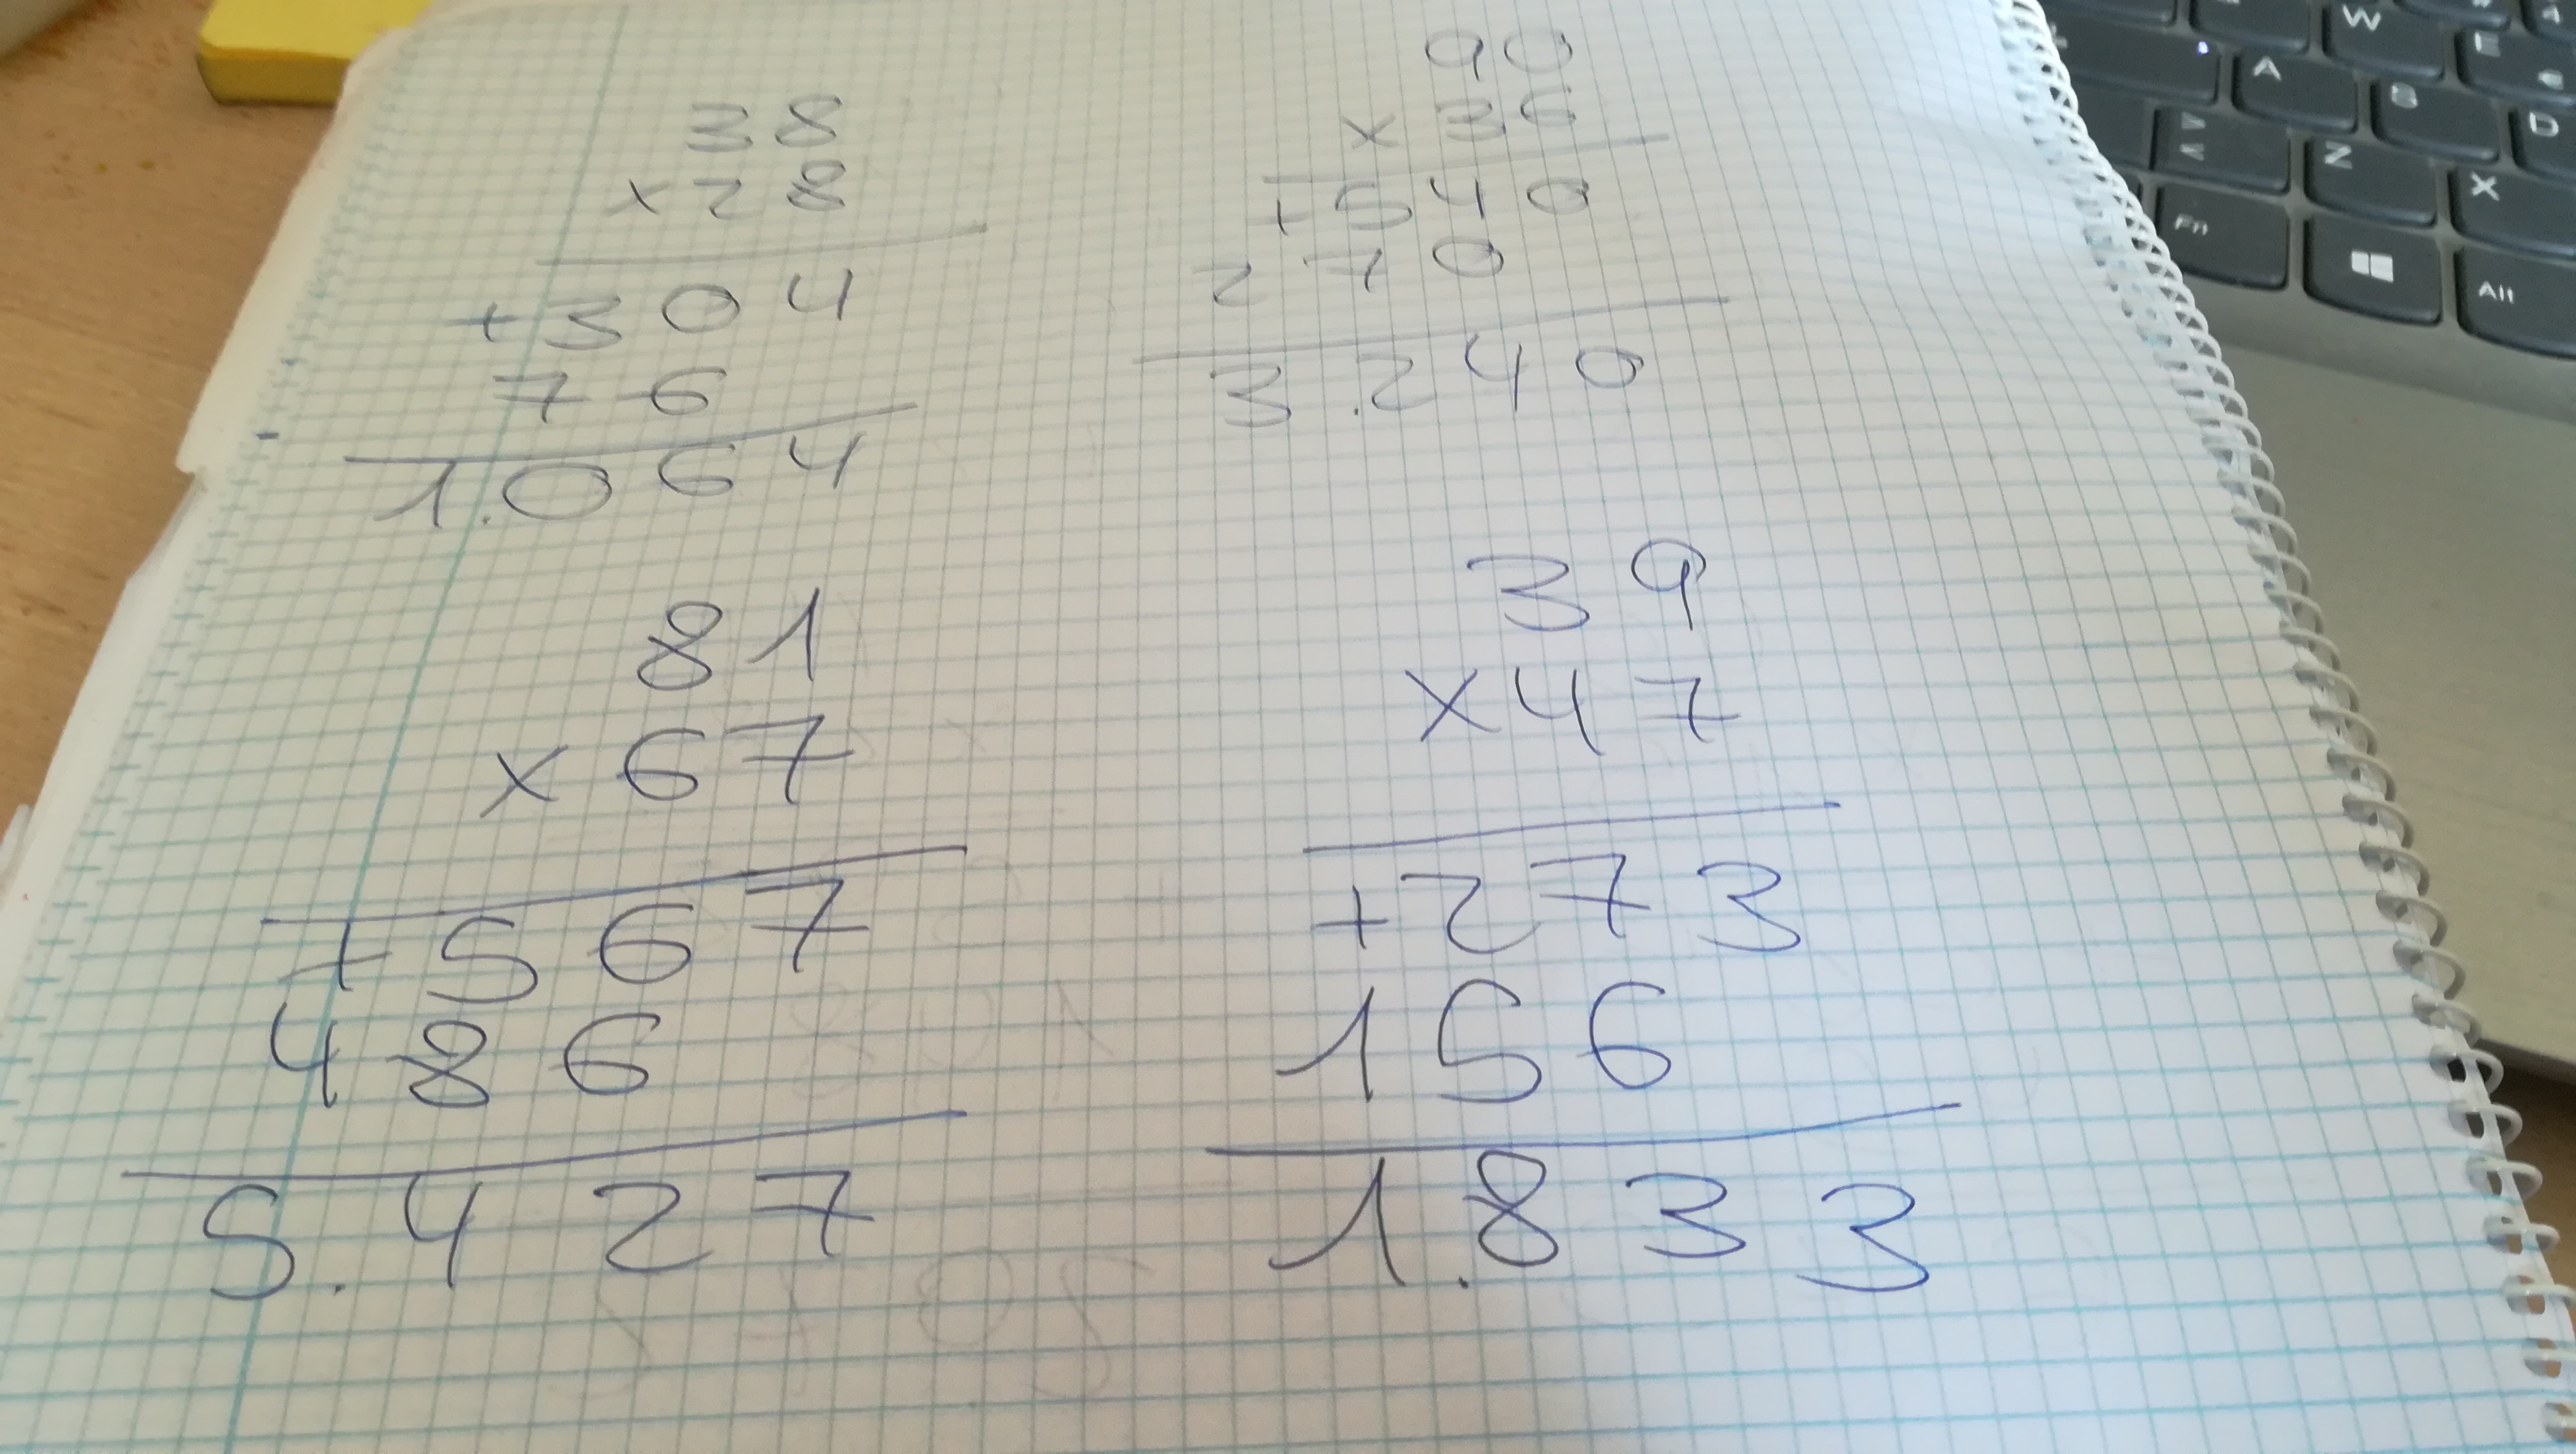 38
x 28
+ 304
76
1.064
90
x 36
+ 540
270
3.240
81
x 67
+ 567
486
5.427
39
x 47
+ 273
156
1.833
W
E
€
A
S
D
>
<
Z
X
Fn
Alt